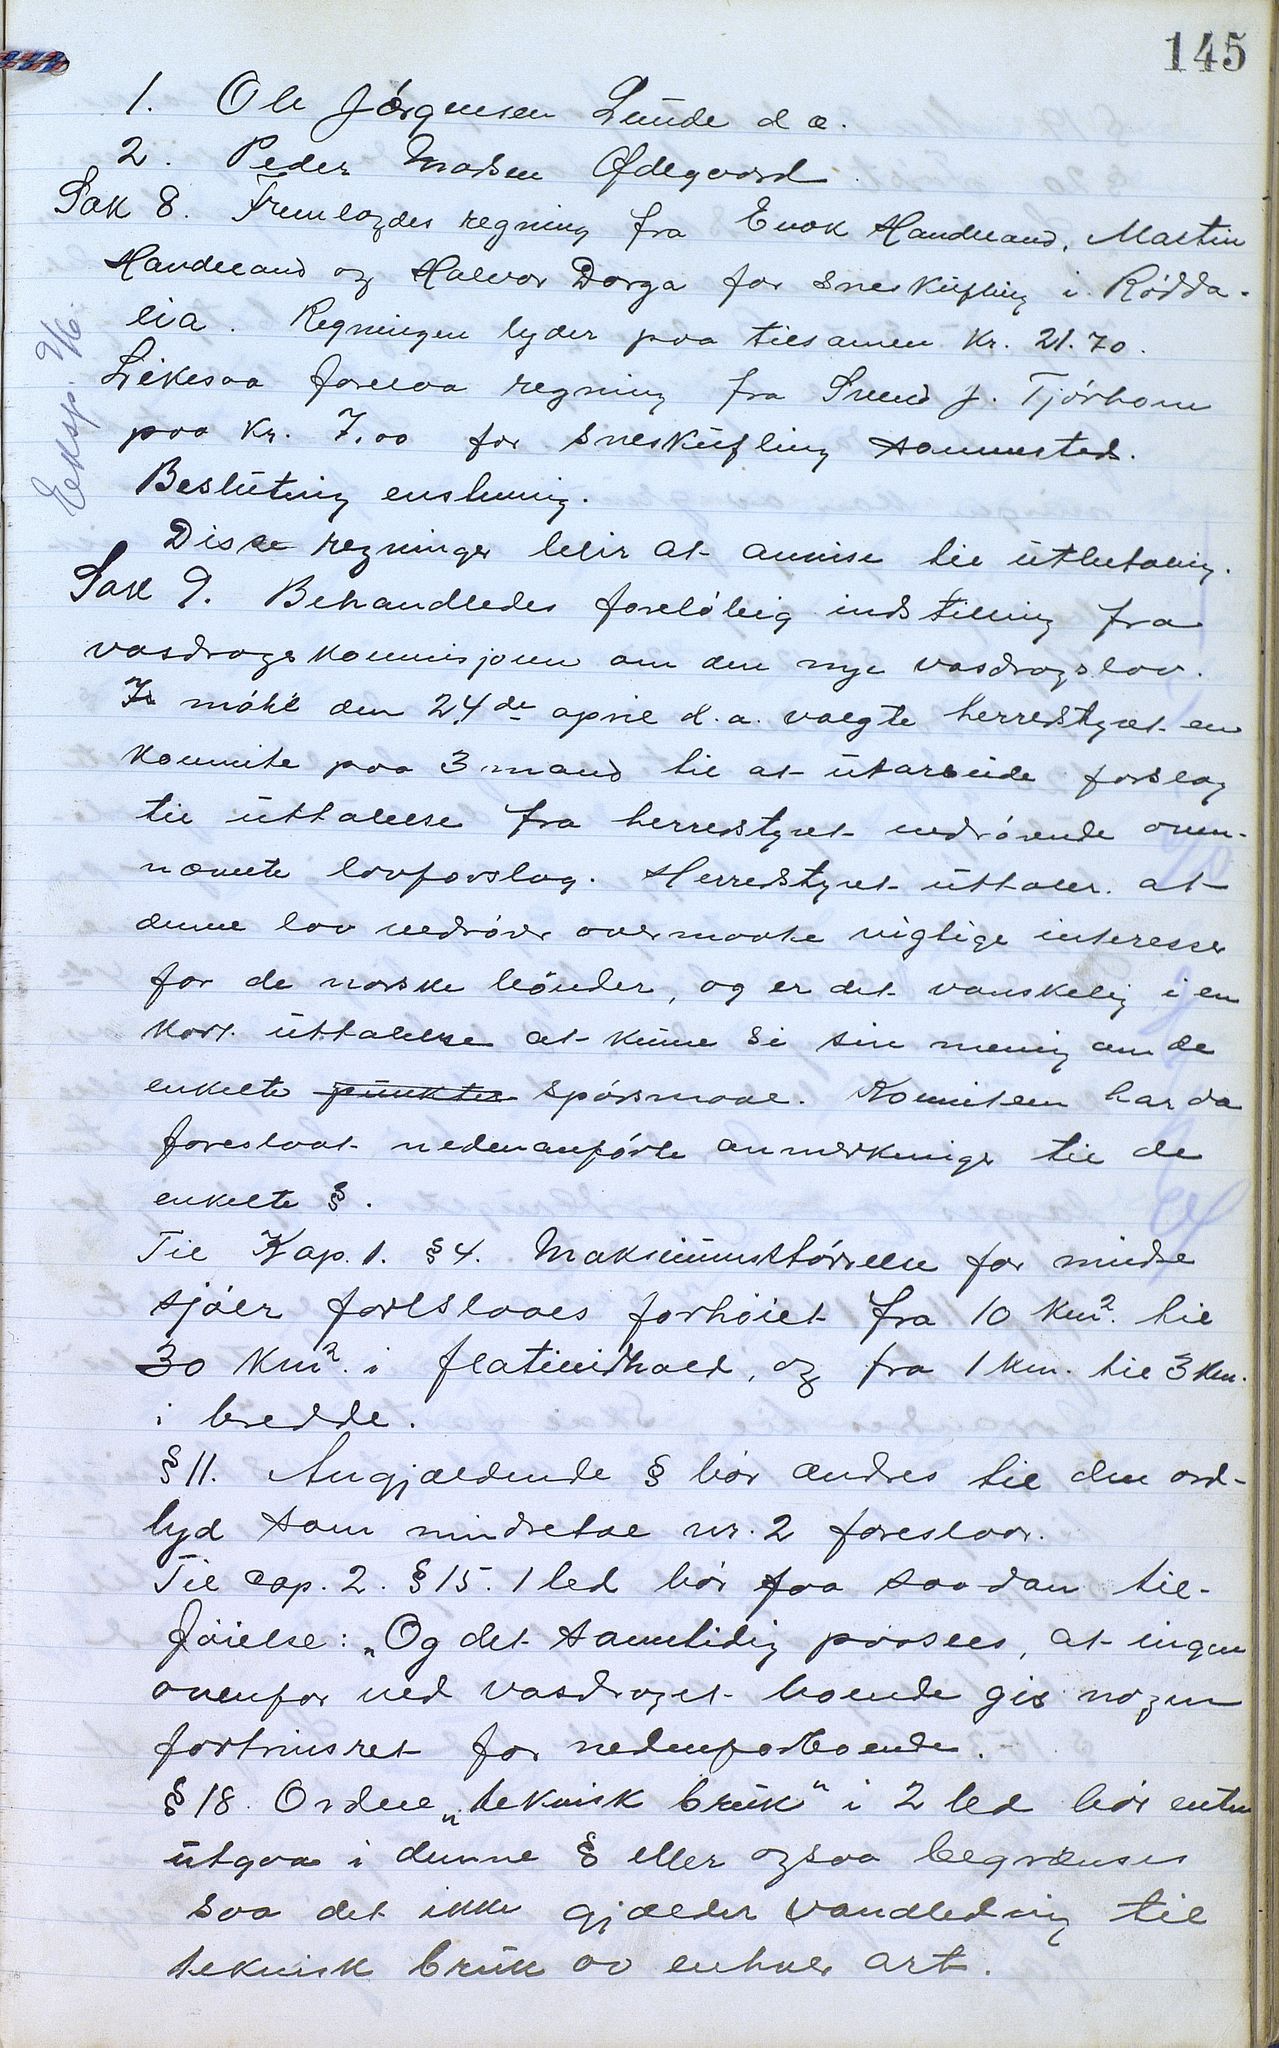 145
1. Ole Jørgensen Lunde d æ.
2. Peder Madsen Ødegaard.
Sak 8. Fremlagdes regning fra Enok Handeland, Martin
Handeland og Halvor Dorga for sneskufling i Rødda-
lia. Regningen lyder paa tilsamen Kr. 21.70.
Likesaa forelaa regning fra Svend J. Tjørhom
paa Kr. 7,00 for sneskufling sammested.
Beslutning enstemmig.
Eksp. 2/6.
Disse regninger blir at anvise til utbetaling.
Sak 9. Behandledes foreløbig indstilling fra
vasdragskommisjonen om den nye vasdragslov.
I møte den 24de april d.a. valgte herredstyret en
komite paa 3 mand til at utarbeide forslag
til uttalelse fra herredstyret vedrørende oven-
nævnte lovforslag. Herredstyret uttaler at
denne lov vedrører overmaate vigtige interesser
for de norske bønder, og er det vanskelig i en
kort uttalelse at kunne si sin mening om de
enkelte punkter spørsmaal. Komiteen har da
foreslaat nedenanførte anmerkninger til de
enkelte §.
Til Kap. 1. §4. Maksimumstørrelse for mindre
sjøer foreslaaes forhøiet fra 10 km². til
30 km². i flateindhald, og fra 1 km. til 3 km.
i bredde.
§11. Angjældende § bør ændres til den ord-
lyd som mindretal nr. 2 foreslaar.
Til Cap. 2. §15. 1 led bør faa saadan til-
føielse: „Og det samtidig paasees, at ingen
ovenfor ved vasdraget boende gis nogen
fortrinsret for nedenforboende.
§18. Ordene „teknisk bruk" i 2 led bør enten
utgaa i denne § eller ogsaa begrænses
saa det ikke gjælder vandledning til
teknisk bruk av enhver art.